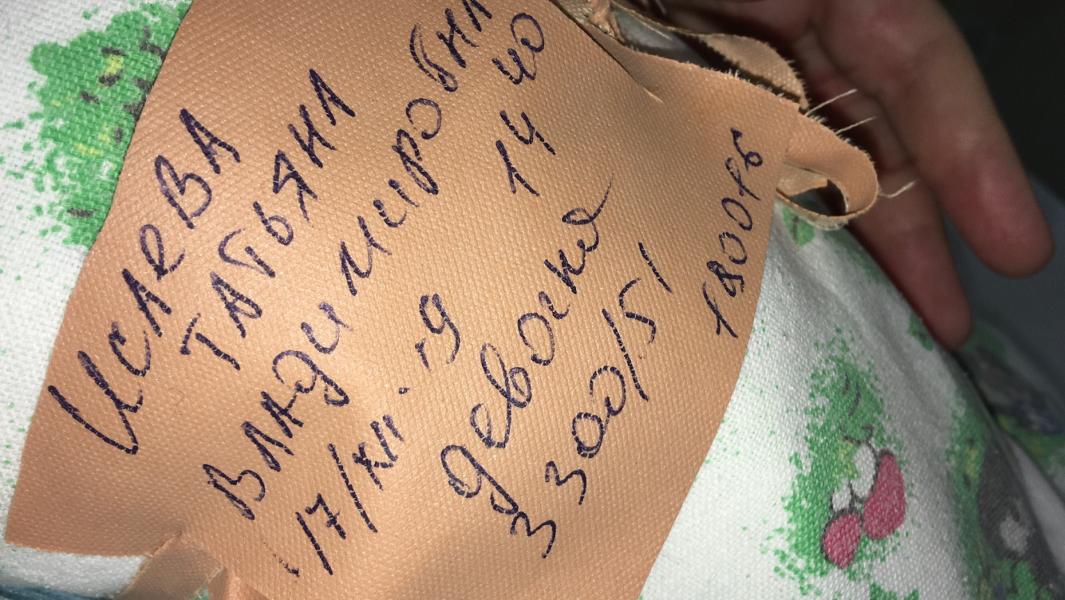 ИСАЕВА
ТАТЬЯНА
ВЛАДИМИРОВНА
17/XII.19 14 40
девочка
3300/51